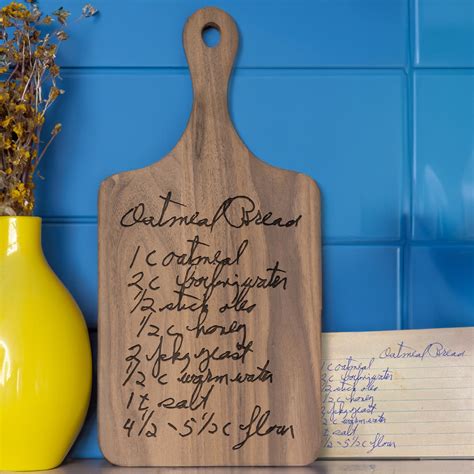 Oatmeal Bread
1 c oatmeal
2 c boiling water
1/2 stick oleo
1/2 c honey
2 pkg yeast
1/2 c warm water
1 t salt
4 1/2 - 5 1/2 c flour
Oatmeal Bread
1 c oatmeal
2 c boiling water
1/2 stick oleo
1/2 c honey
2 pkg yeast
1/2 c warm water
1 t salt
4 1/2 - 5 1/2 c flour